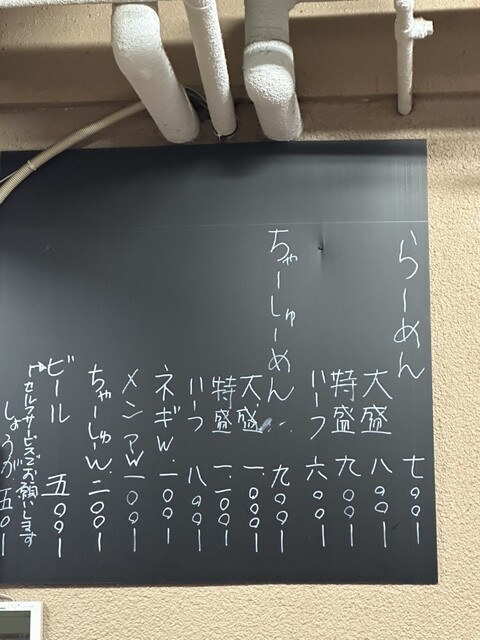 らーめん 七〇〇ー
大盛 八〇〇ー
特盛 九〇〇ー
ハーフ 六〇〇ー
ちゃーしゅーめん 九〇〇ー
大盛 一、〇〇〇ー
特盛 一、一〇〇ー
ハーフ 八〇〇ー
ネギW. 一〇〇ー
メンマW 一〇〇ー
ちゃーしゅーW. 二〇〇ー
ビール 五〇〇ー
↳セルフサービスでお願いします
しょうが 五〇ー